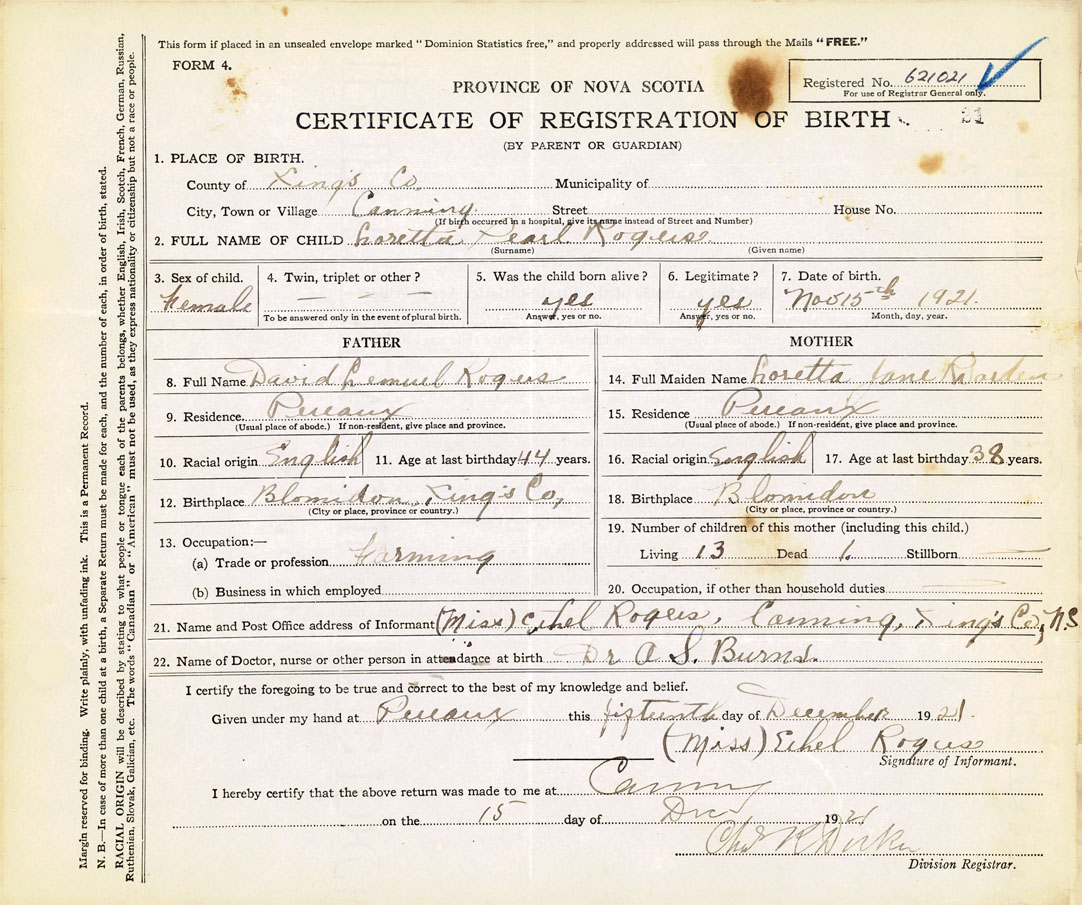 This form if placed in an unsealed envelope marked "Dominion Statistics free," and properly addressed will pass through the Mails "FREE."
FORM 4.
Registered No. 621021
For use of Registrar General only.
PROVINCE OF NOVA SCOTIA
CERTIFICATE OF REGISTRATION OF BIRTH
(BY PARENT OR GUARDIAN)
1. PLACE OF BIRTH.
County of King's Co. Municipality of
City, Town or Village Canning Street House No.
(If birth occurred in a hospital, give its name instead of Street and Number)
2. FULL NAME OF CHILD Loretta Pearl Rogers
(Surname) (Given name)
3. Sex of child. 4. Twin, triplet or other? 5. Was the child born alive? 6. Legitimate? 7. Date of birth.
Female — — — yes yes Nov 15th 1921.
To be answered only in the event of plural birth. Answer, yes or no. Answer, yes or no. Month, day, year.
FATHER
8. Full Name David Lemuel Rogers
9. Residence Pereaux
(Usual place of abode.) If non-resident, give place and province.
10. Racial origin English 11. Age at last birthday 44 years.
12. Birthplace Blomidon, King's Co,
(City or place, province or country.)
13. Occupation:—
(a) Trade or profession Farming
(b) Business in which employed
MOTHER
14. Full Maiden Name Loretta Jane
15. Residence Pereaux
(Usual place of abode.) If non-resident, give place and province.
16. Racial origin English 17. Age at last birthday 38 years.
18. Birthplace Blomidon
(City or place, province or country.)
19. Number of children of this mother (including this child.)
Living 13 Dead 1. Stillborn —
20. Occupation, if other than household duties
21. Name and Post Office address of Informant (Miss) Ethel Rogers, Canning, King's Co, N.S
22. Name of Doctor, nurse or other person in attendance at birth Dr A S. Burns.
I certify the foregoing to be true and correct to the best of my knowledge and belief.
Given under my hand at Pereaux this fifteenth day of December 1921.
(Miss) Ethel Rogers
Signature of Informant.
I hereby certify that the above return was made to me at Canning
on the 15 day of Dec 1921
Division Registrar.
Margin reserved for binding. Write plainly, with unfading ink. This is a Permanent Record.
N. B.—In case of more than one child at a birth, a Separate Return must be made for each, and the number of each, in order of birth, stated.
RACIAL ORIGIN will be described by stating to what people or tongue each of the parents belongs, whether English, Irish, Scotch, French, German, Russian,
Ruthenian, Slovak, Galician, etc. The words "Canadian" or "American" must not be used, as they express nationality or citizenship but not a race or people.